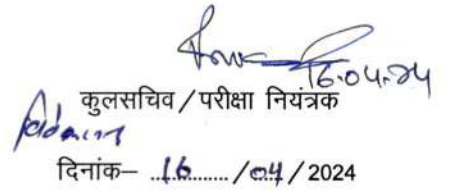 16.04.24
कुलसचिव / परीक्षा नियंत्रक
दिनांक– 16 /04 / 2024